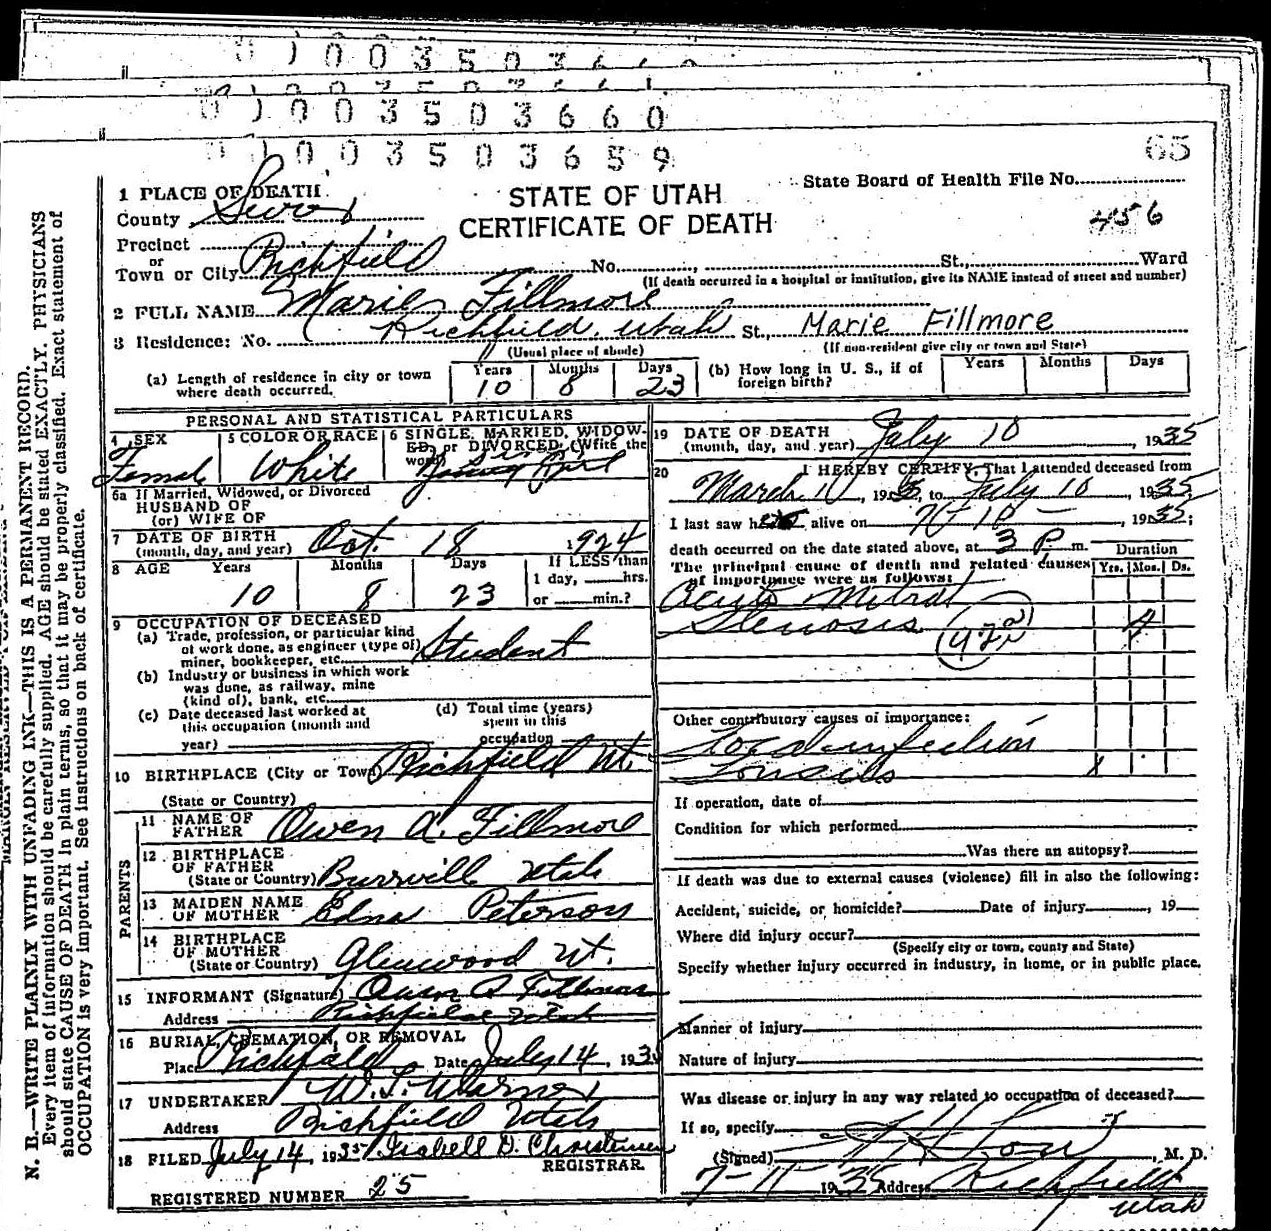 0 0 3 5 0 3 6 6
0 0 3 5 0 3 6 6 0
0 0 3 5 0 3 6 5 9
65
STATE OF UTAH
CERTIFICATE OF DEATH
State Board of Health File No.
456
1 PLACE OF DEATH
County Sevier
Precinct
or
Town or City Richfield No. , St., Ward
(If death occurred in a hospital or institution, give its NAME instead of street and number)
2 FULL NAME Marie Fillmore
3 Residence: No. Richfield, Utah St., Marie Fillmore
(Usual place of abode) (If non-resident give city or town and State)
(a) Length of residence in city or town where death occurred. Years 10 Months 8 Days 23
(b) How long in U. S., if of foreign birth? Years Months Days
PERSONAL AND STATISTICAL PARTICULARS
4 SEX Female
5 COLOR OR RACE White
6 SINGLE, MARRIED, WIDOWED, or DIVORCED (Write the word) Girl
6a If Married, Widowed, or Divorced
HUSBAND OF
(or) WIFE OF
7 DATE OF BIRTH
(month, day, and year) Oct. 18 1924
8 AGE Years 10 Months 8 Days 23 If LESS than
1 day, hrs.
or min.?
9 OCCUPATION OF DECEASED
(a) Trade, profession, or particular kind
of work done, as engineer (type of)
miner, bookkeeper, etc. Student
(b) Industry or business in which work
was done, as railway, mine
(kind of), bank, etc.
(c) Date deceased last worked at
this occupation (month and
year)
(d) Total time (years)
spent in this
occupation
10 BIRTHPLACE (City or Town) Richfield Ut.
(State or Country)
PARENTS
11 NAME OF
FATHER Owen A. Fillmore
12 BIRTHPLACE
OF FATHER
(State or Country) Burrville Utah
13 MAIDEN NAME
OF MOTHER Edna Peterson
14 BIRTHPLACE
OF MOTHER
(State or Country) Glenwood Ut.
15 INFORMANT (Signature) Owen A Fillmore
Address Richfield Utah
16 BURIAL, CREMATION, OR REMOVAL
Place Richfield Date July 14, 193
17 UNDERTAKER
Address Richfield Utah
18 FILED July 14, 1935 Isabell D. Christensen
REGISTRAR.
REGISTERED NUMBER 25
19 DATE OF DEATH
(month, day, and year) July 10, 1935
20 I HEREBY CERTIFY, That I attended deceased from
March 10, 193 , to July 10, 1935,
I last saw her alive on 10, 1935;
death occurred on the date stated above, at 3 P. m.
The principal cause of death and related causes
of importance were as follows:
Duration
Yrs. Mos. Ds.
Acute Mitral
Stenosis 4
Other contributory causes of importance:
infection
Tonsils x
If operation, date of
Condition for which performed
Was there an autopsy?
If death was due to external causes (violence) fill in also the following:
Accident, suicide, or homicide? Date of injury , 19
Where did injury occur?
(Specify city or town, county and State)
Specify whether injury occurred in industry, in home, or in public place.
Manner of injury
Nature of injury
Was disease or injury in any way related to occupation of deceased?
If so, specify
(Signed) , M. D.
7-11 1935 Address Richfield
Utah
N. B.—WRITE PLAINLY WITH UNFADING INK—THIS IS A PERMANENT RECORD.
Every item of information should be carefully supplied. AGE should be stated EXACTLY. PHYSICIANS
should state CAUSE OF DEATH in plain terms, so that it may be properly classified. Exact statement of
OCCUPATION is very important. See instructions on back of certificate.